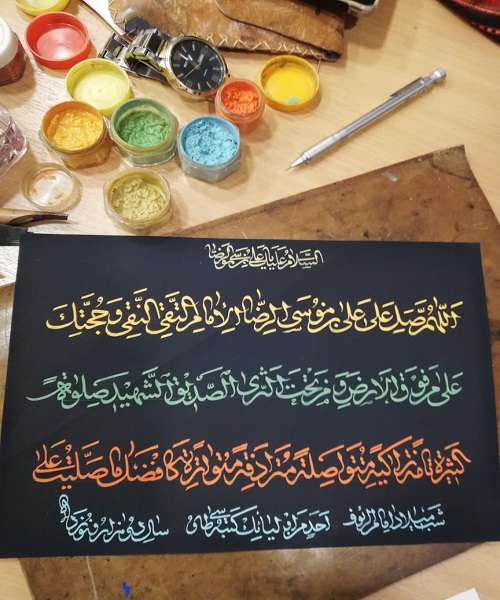 السلام علیک یا علی بن موسی الرضا
اللهم صل علی علی بن موسی الرضا الامام التقی النقی و حجتک
علی من فوق الارض و من تحت الثری الصدیق الشهید صلوة
کثیرة تامة زاکیة متواصلة مترادفة متواترة کافضل ما صلیت علی
احد من اولیائک